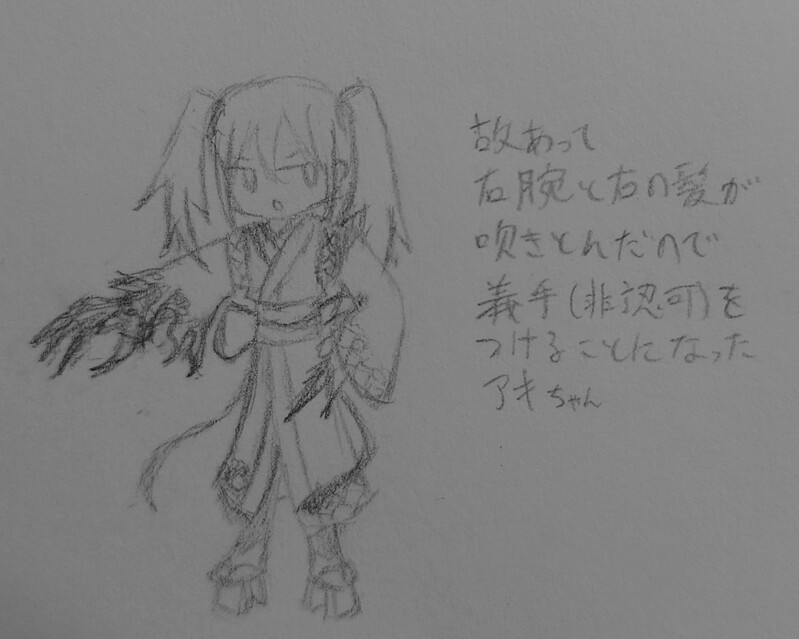 故あって
右腕と右の髪が
吹きとんだので
義手(非認可)を
つけることになった
アキちゃん